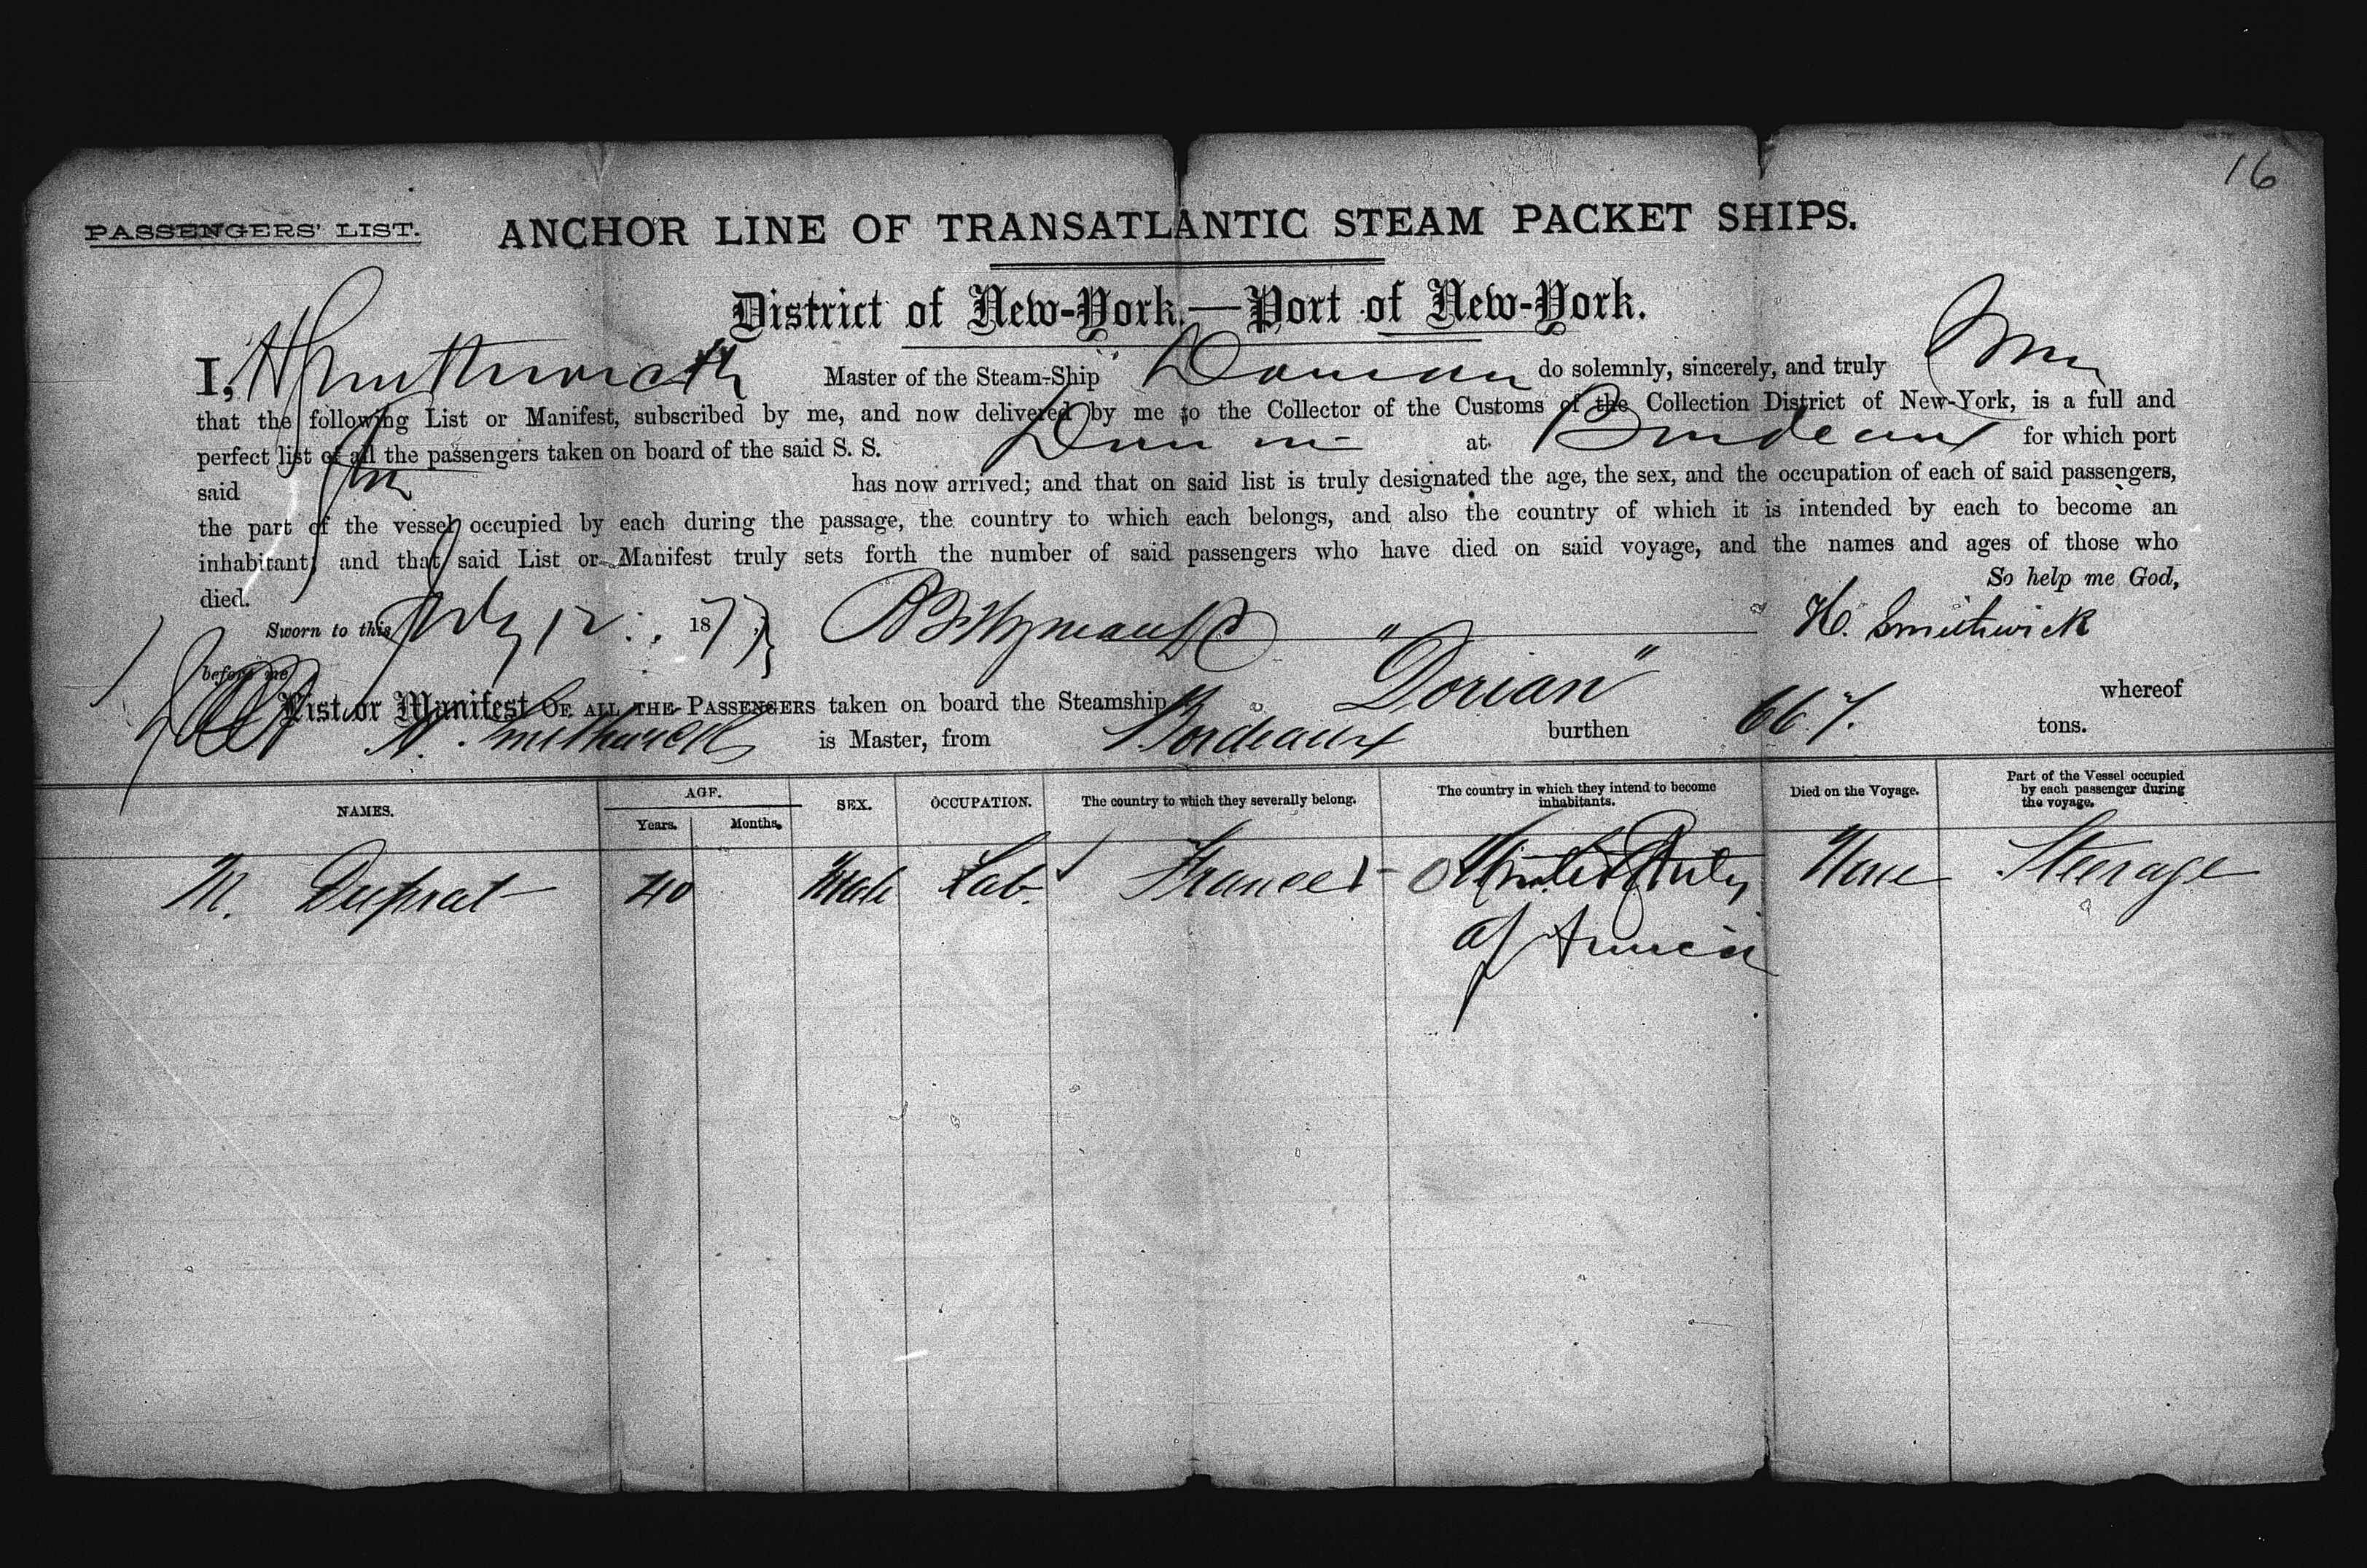 16
PASSENGERS' LIST. ANCHOR LINE OF TRANSATLANTIC STEAM PACKET SHIPS.
District of New-York.—Port of New-York.
I, H Smithwick Master of the Steam-Ship Dorian do solemnly, sincerely, and truly
that the following List or Manifest, subscribed by me, and now delivered by me to the Collector of the Customs of the Collection District of New-York, is a full and
perfect list of all the passengers taken on board of the said S. S. Dorian at Bordeaux for which port
said has now arrived; and that on said list is truly designated the age, the sex, and the occupation of each of said passengers,
the part of the vessel occupied by each during the passage, the country to which each belongs, and also the country of which it is intended by each to become an
inhabitant; and that said List or Manifest truly sets forth the number of said passengers who have died on said voyage, and the names and ages of those who
died. So help me God,
Sworn to this July 12 1877 H. Smithwick
before me
List or Manifest OF ALL THE PASSENGERS taken on board the Steamship "Dorian" whereof
H. Smithwick is Master, from Bordeaux burthen 667. tons.
NAMES. AGE. Years. Months. SEX. OCCUPATION. The country to which they severally belong. The country in which they intend to become inhabitants. Died on the Voyage. Part of the Vessel occupied by each passenger during the voyage.
M. Duprat 40 Male Lab. France United States None Steerage
of America